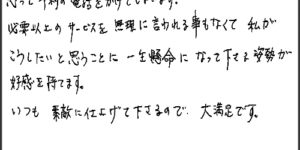 必要以上のサービスを無理に言われる事もなくて 私が
こうしたいと思うことに一生懸命になって下さる姿勢が
好感を持てます。
いつも 素敵に仕上げて下さるので、大満足です。